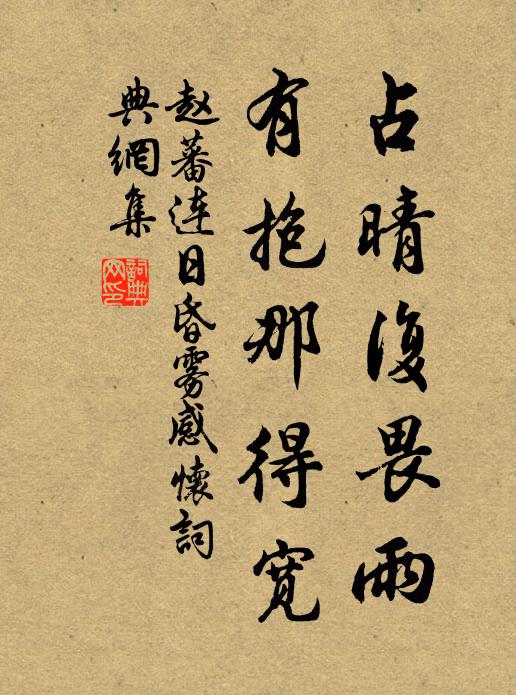 占晴復畏雨
有抱那得寬
赵蕃连日昏雾感懷詞
典網集
詞典
网印